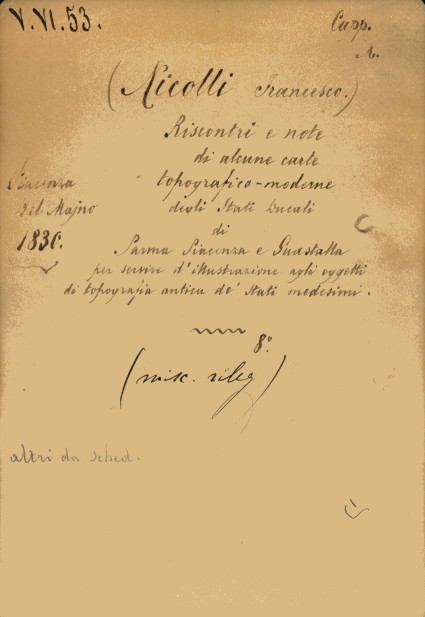 V.VI.53.
Casp.
A.
(Nicolli Francesco.)
Riscontri e note
di alcune carte
topografico-moderne
degli Stati Ducali
di
Parma Piacenza e Guastalla
per servire d'illustrazione agli oggetti
di topografia antica de' Stati medesimi.
Piacenza
del Majno
1830.
8º.
(misc. rileg)
altri da sched.